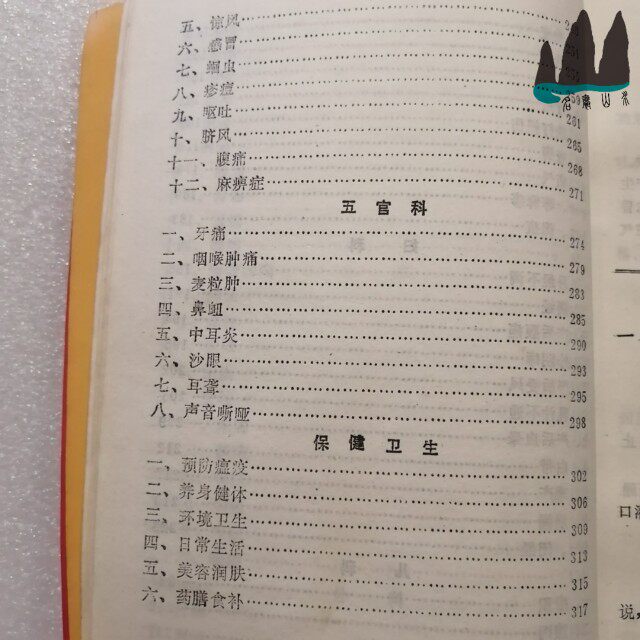 五、惊风
六、感冒 251
七、蛔虫
八、疹痘 259
九、呕吐 261
十、脐风 265
十一、腹痛 268
十二、麻痹症 271
五官科
一、牙痛 274
二、咽喉肿痛 279
三、麦粒肿 283
四、鼻衄 285
五、中耳炎 290
六、沙眼 293
七、耳聋 295
八、声音嘶哑 298
保健卫生
一、预防瘟疫 302
二、养身健体 306
三、环境卫生 309
四、日常生活 313
五、美容润肤 315
六、药膳食补 317
一
口
说，